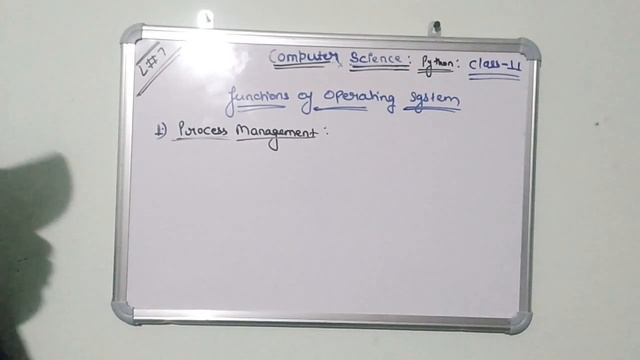 L#7
Computer Science: Python: Class-11
functions of Operating System
1:) Process Management: